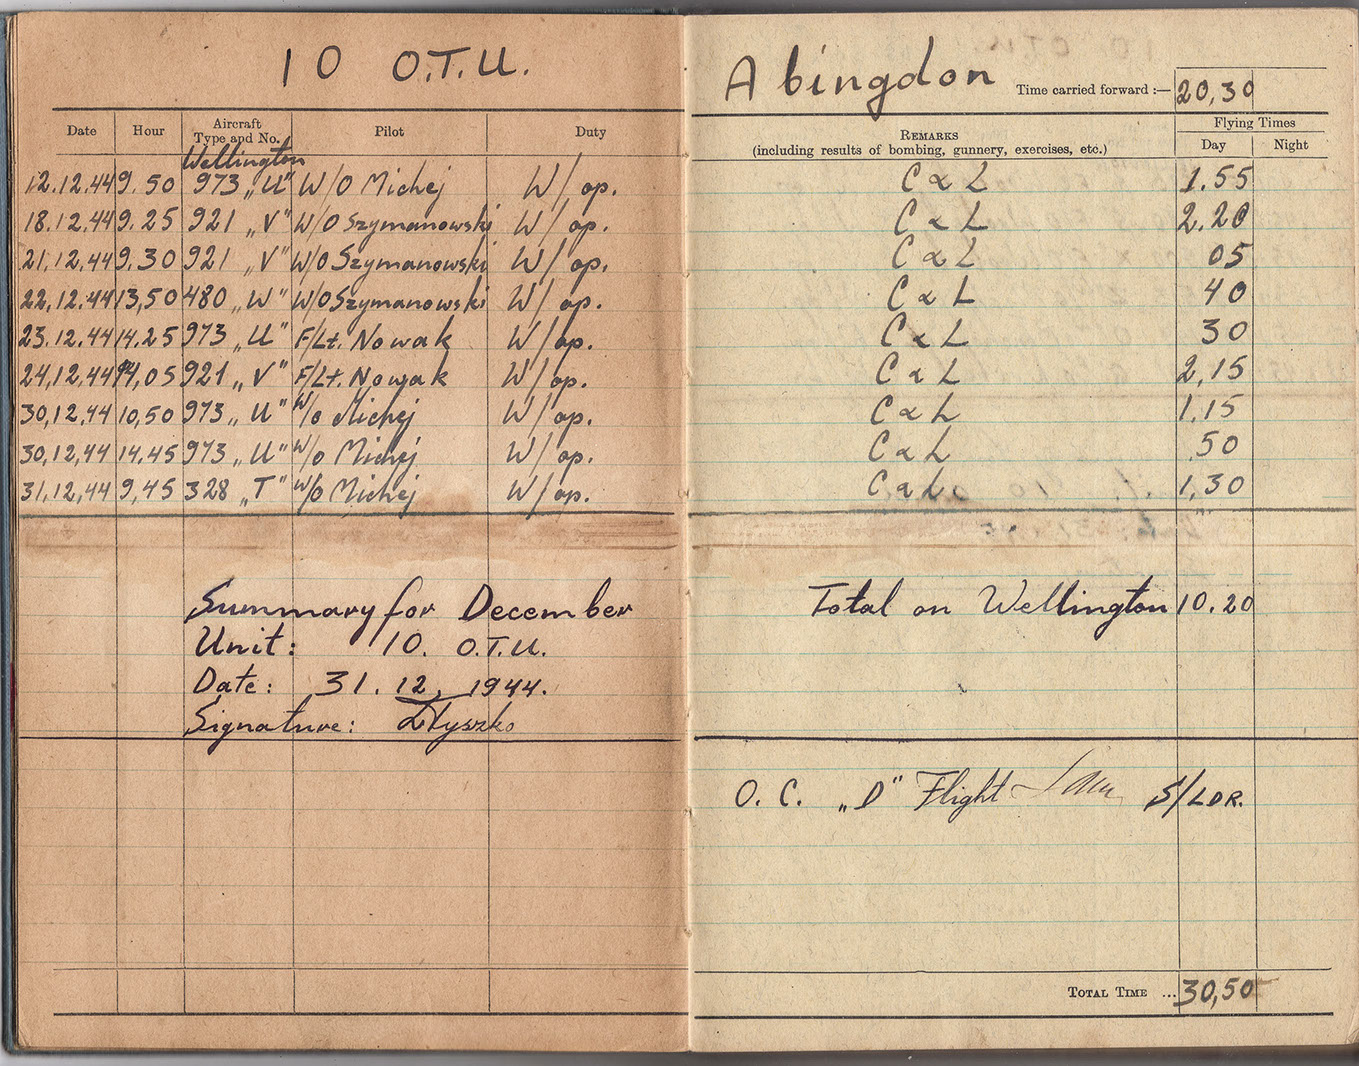 10 O.T.U.
Abingdon Time carried forward :— 20,30
Date Hour Aircraft Type and No. Pilot Duty REMARKS (including results of bombing, gunnery, exercises, etc.) Flying Times Day Night
Wellington
12.12.44 9.50 973 „U" W/O Michej W/op. C & L 1.55
18.12.44 9.25 921 „V" W/O Szymanowski W/op. C & L 2.20
21.12.44 9.30 921 „V" W/O Szymanowski W/op. C & L 05
22.12.44 13,50 480 „W" W/O Szymanowski W/op. C & L 40
23.12.44 14.25 973 „U" F/Lt. Nowak W/op. C & L 30
24,12.44 14,05 921 „V" F/Lt. Nowak W/op. C & L 2,15
30,12.44 10,50 973 „U" W/O Michej W/op. C & L 1.15
30,12,44 14.45 973 „U" W/O Michej W/op. C & L .50
31,12,44 9,45 328 „T" W/O Michej W/op. C & L 1,30
Summary for December Total on Wellington 10.20
Unit: 10. O.T.U.
Date: 31.12. 1944.
Signature:
O. C. „D" Flight S/LDR.
TOTAL TIME ... 30,50